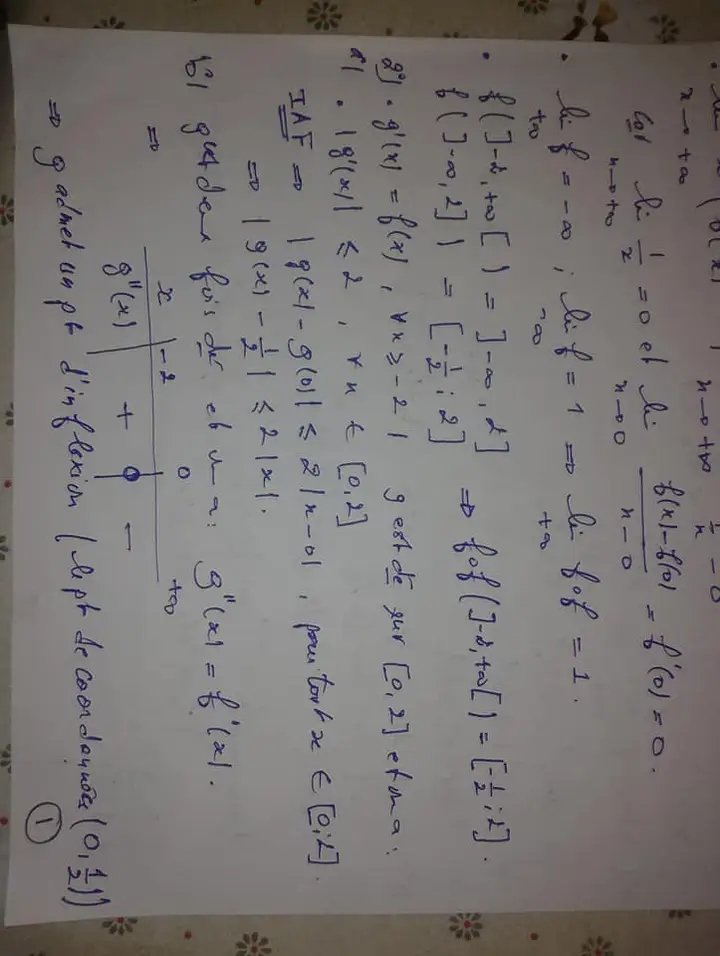 x → +∞
Car lim 1/x = 0 et lim (f(x) - f(0))/(x - 0) = f'(0) = 0.
x → +∞ x → 0
• lim f = -∞ ; lim f = 1 ⇒ lim f∘f = 1.
+∞ -∞ +∞
• f(]-2, +∞[) = ]-∞, 2]
f(]-∞, 2]) = [-1/2 ; 2] ⇒ f∘f(]-2, +∞[) = [-1/2 ; 2].
2°) • g'(x) = f(x), ∀x ≥ -2 |
a) • |g'(x)| ≤ 2, ∀x ∈ [0,2] g est dé sur [0,2] et on a :
IAF ⇒ |g(x) - g(0)| ≤ 2|x - 0|, pour tout x ∈ [0;2].
⇒ |g(x) - 1/2| ≤ 2|x|.
b) g est deux fois dé et on a : g''(x) = f'(x).
⇒ x | -2 0 +∞
g''(x) | + 0 -
⇒ g admet un pt d'inflexion (le pt de coordonnées (0, 1/2))
1